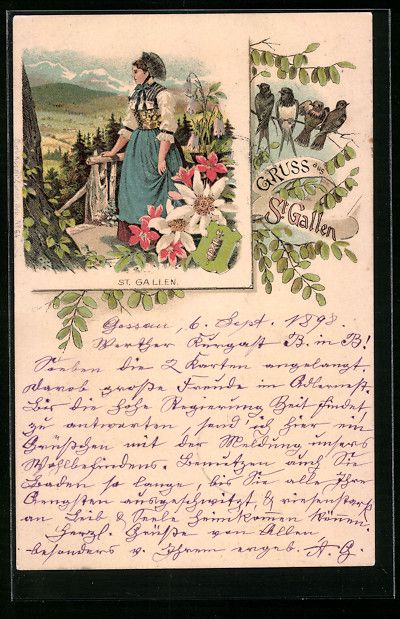 GRUSS aus
St. Gallen
ST. GALLEN.
Gossau, 6. Sept. 1898.
Werther Kurgast B. in B!
Soeben die 2 Karten angelangt
darob große Freude im Adlernest.
Bis die hohe Regierung Zeit findet
zu antworten, send' ich hier ein
Grüßchen mit der Meldung unsers
Wohlbefindens. Benutzen auch Sie
Baden so lange, bis Sie alle Ihre
Aengsten ausgeschwitzt, & riesenstark
an Leib & Seele heimkommen können.
Herzl. Grüße von Allen
besonders v. Ihrem ergeb. A. G.